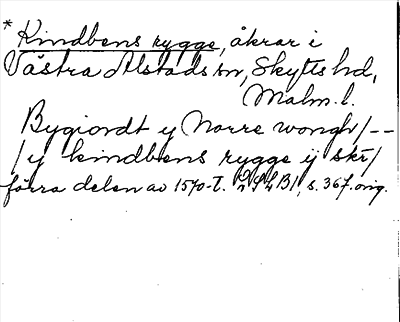 * Kindbens rygge, åkrar i
Västra Alstads sn, Skytts hd,
Malm. l.
Bygiordt y Norre wongh/--
/y kindbens rygge ij skr/
förra delen av 1570-t. LLB1, s. 367. orig.